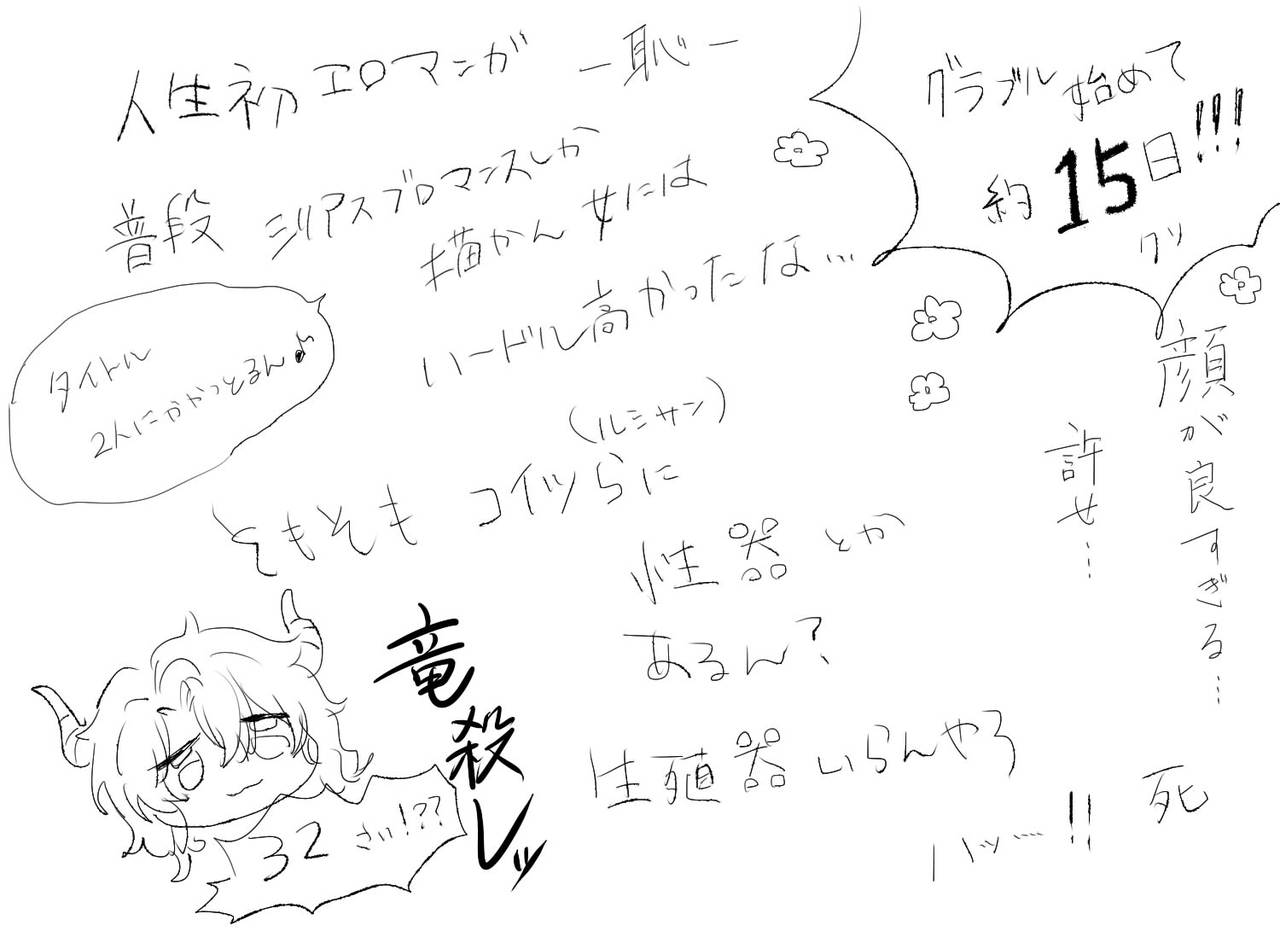 人生初エロマンガ ー恥ー
普段 シリアスブロマンスしか
描かん女には
ハードル高かったな…
タイトル
2人にかかっとるん♪
(ルシサン)
そもそも コイツらに
性器とか
あるん?
生殖器いらんやろ
ハッ……!!
グラブル始めて
約15日!!!
クソ
顔が良すぎる…
許せ…
死
竜殺しッ
32さい!??